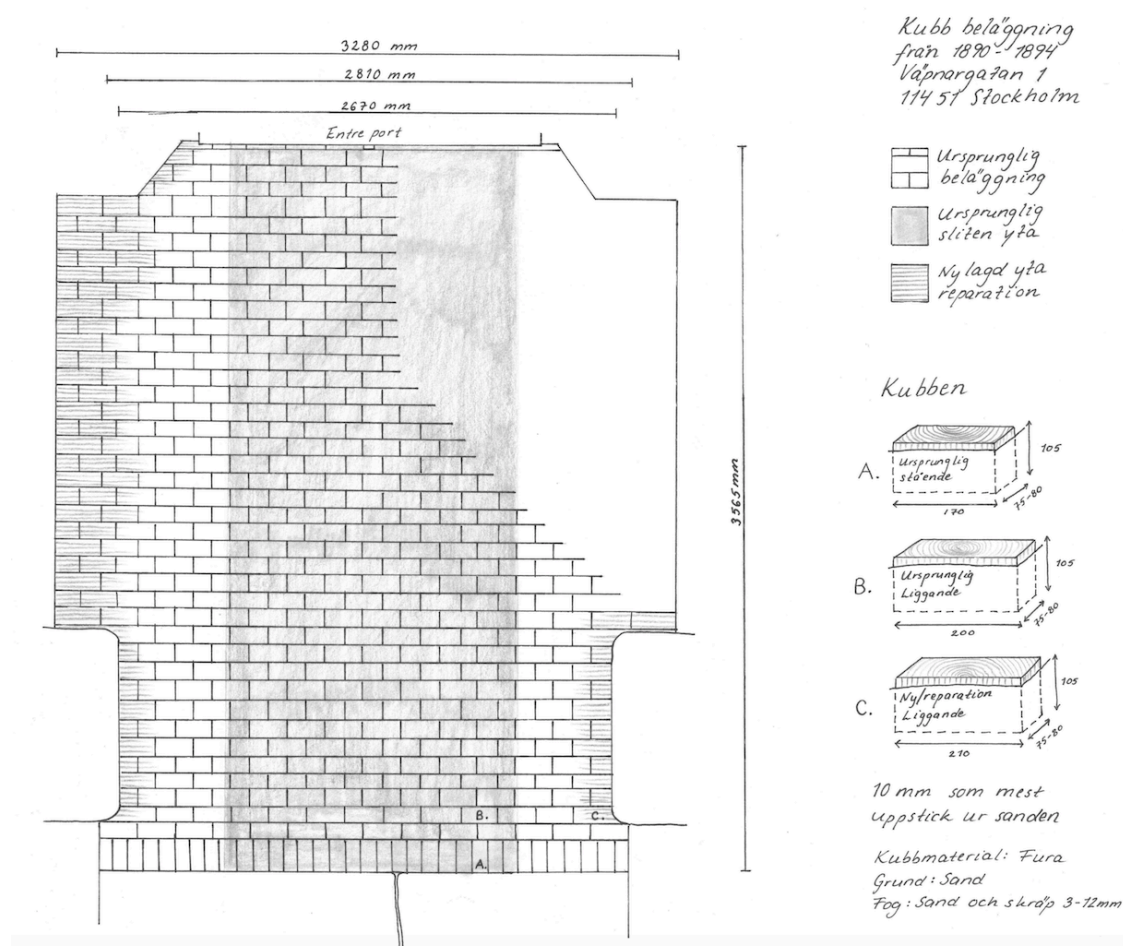 3280 mm
2810 mm
2670 mm
Entre port
3565 mm
B.
C.
A.
Kubb beläggning
från 1890-1894
Väpnargatan 1
114 51 Stockholm
Ursprunglig
beläggning
Ursprunglig
sliten yta
Ny lagd yta
reparation
Kubben
A.
Ursprunglig
stående
105
75-80
170
B.
Ursprunglig
Liggande
105
75-80
200
C.
Ny/reparation
Liggande
105
75-80
210
10 mm som mest
uppstick ur sanden
Kubbmaterial: Fura
Grund: Sand
Fog: Sand och skräp 3-12mm